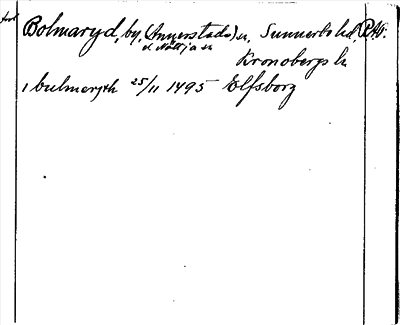 Bolmaryd, by, (Annerstads) sn, Sunnerbo hd, P.N.
el. Nöttja sn
Kronobergs ln
i bulmerydh 25/11 1495 Elfsborg